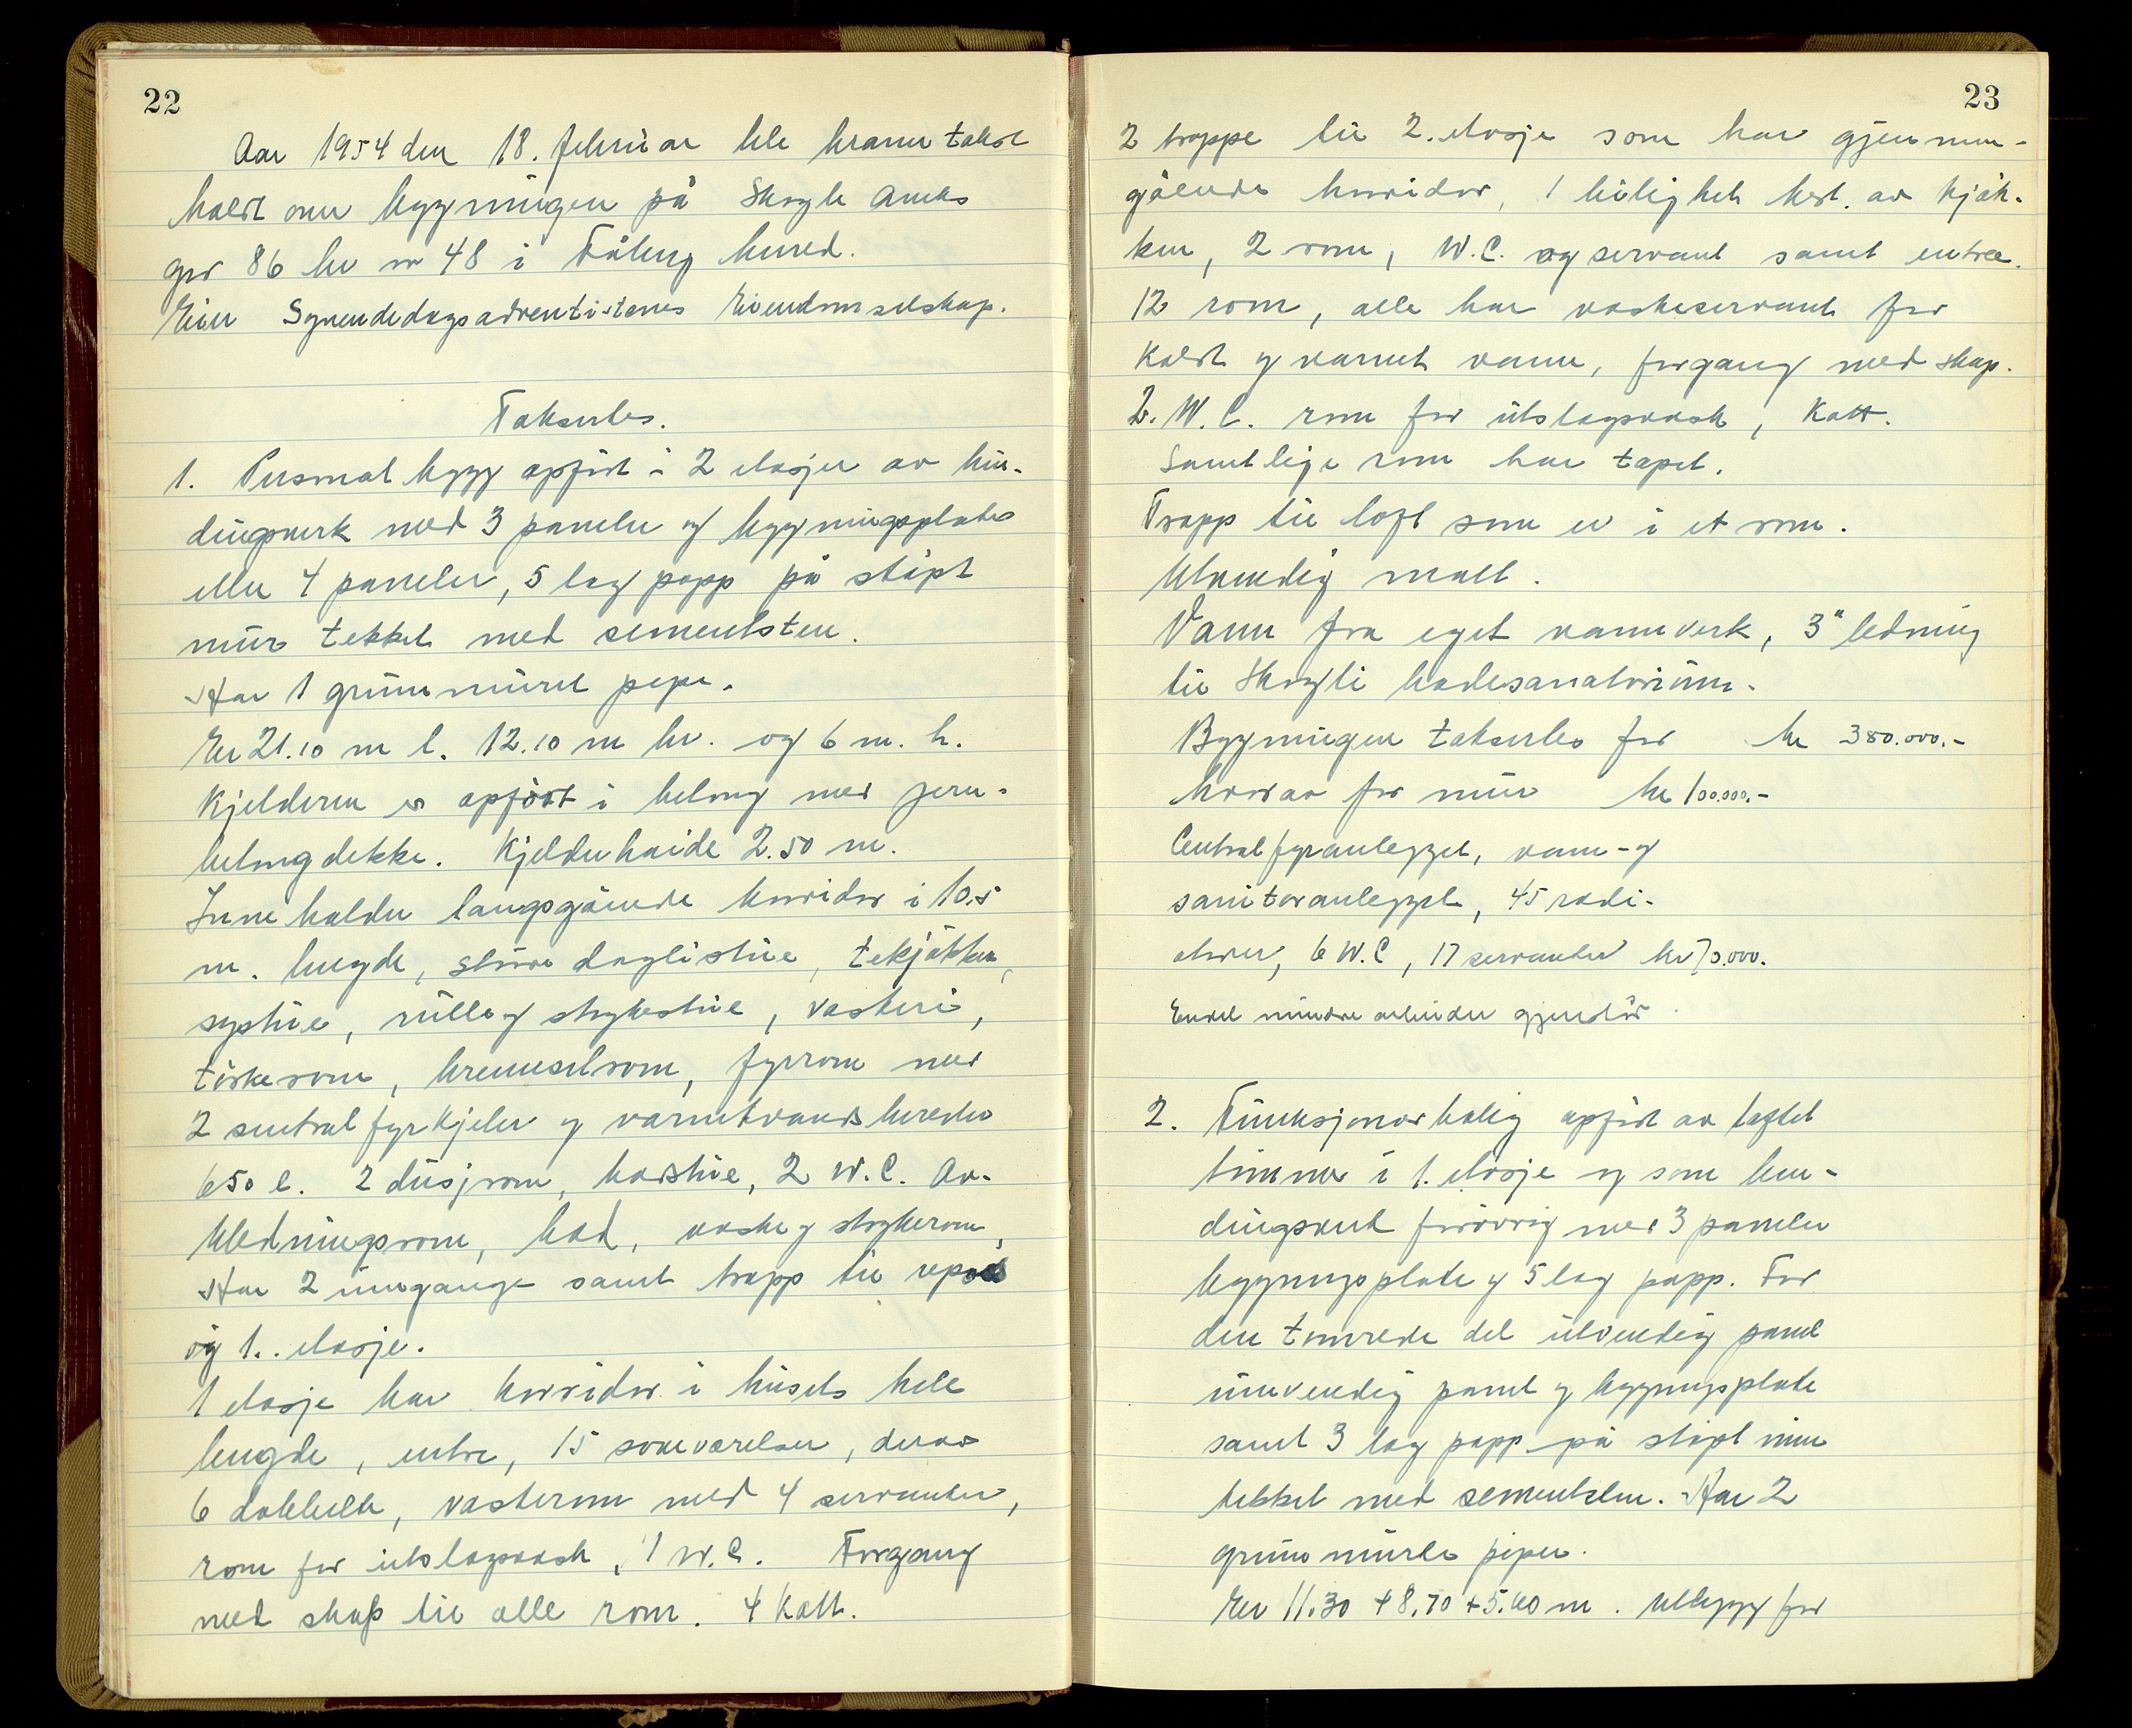 22
Aar 1954 den 18. februar ble branntakst
holdt over bygningen på Skogli Aneks
gnr 86 br nr 48 i Fåberg herred.
Eier Syvendedagsadventistenes Eiendomselskap.
Takserles.
1. Personalbygg opført i 2 etasjer av bin-
dingsverk med 3 paneler og bygningsplate
eller 4 paneler, 5 lag papp på støpt
mur tekket med sementsten.
Har 1 grunnmuret pipe.
Er 21.10 m l. 12.10 m br. og 6 m. h.
Kjelderen er opført i betong med jern-
betongdekke. Kjelderhøide 2.50 m.
Inneholder langsgående korridor i 10.5
m. lengde, større daglistue, tekjøkken,
systue, rulle og strykestue, vaskeri,
tørkerom, brenselrom, fyrrom med
2 sentralfyrkjeler og varmtvandsbereder
650 l. 2 dusjrom, badstue, 2 W.C. Av-
kledningsrom, bad, vaske og strykerom,
Har 2 innganger samt trapp til repos
og 1. etasje.
1 etasje har korridor i husets hele
lengde, entre, 15 soveværelser, derav
6 dobbelte, vaskerom med 4 servanter,
rom for utslagsvask, 1 W.C. Forgang
med skap til alle rom. 4 Kott.
23
2 trappe til 2. etasje som har gjennem-
gående korridor, 1 leilighet best. av kjøk-
ken, 2 rom, W.C. og servant samt entree.
12 rom, alle har vaskeservant for
koldt og varmt vann, forgang med skap.
2. W.C. rom for utslagsvask, Kott.
Samtlige rom har tapet.
Trapp til loft som er i et rom.
Utvendig malt.
Vann fra eget vannverk, 3" ledning
til Skogli badesanatorium.
Bygningen takserles for kr 380.000.-
hvorav for mur kr 100.000.-
Centralfyranlegget, vann- og
sanitæranlegget, 45 radi-
atorer, 6 W.C, 17 servanter kr 70.000.
Endel mindre arbeider gjenstår
2. Funksjonærbolig opført av laftet
tømmer i 1. etasje og som bin-
dingsverk forøvrig med 3 paneler
bygningsplate og 5 lag papp. For
den tømrede del utvendig panel
innvendig panel og bygningsplate
samt 3 lag papp på støpt mur
tekket med sementsten. Har 2
grunnmurte piper.
Er 11.30 + 8.70 + 5.60 m. Utbygg for